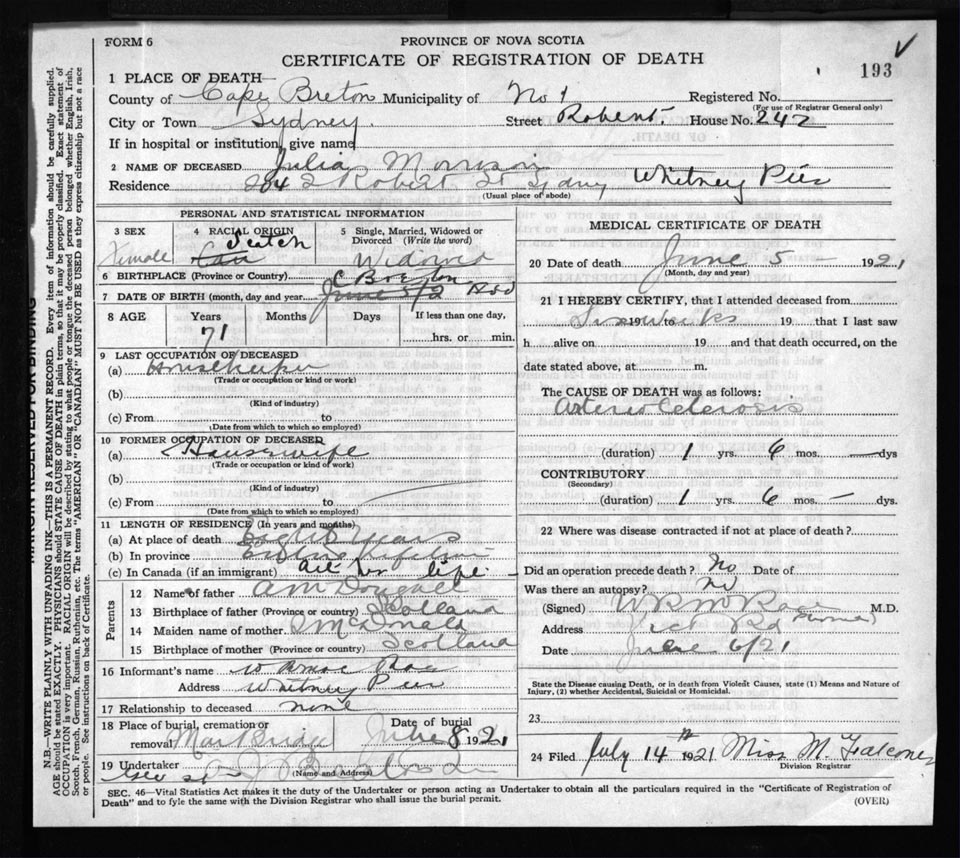 FORM 6
PROVINCE OF NOVA SCOTIA
CERTIFICATE OF REGISTRATION OF DEATH
193
1 PLACE OF DEATH—
County of Cape Breton Municipality of No 1 Registered No.
(For use of Registrar General only)
City or Town Sydney. Street Robert. House No. 242
If in hospital or institution, give name
2 NAME OF DECEASED Julia Morrison
Residence Robert St Sydney Whitney Pier
(Usual place of abode)
PERSONAL AND STATISTICAL INFORMATION
3 SEX 4 RACIAL ORIGIN 5 Single, Married, Widowed or Divorced (Write the word)
Female Scotch Widowed
6 BIRTHPLACE (Province or Country) C Breton
7 DATE OF BIRTH (month, day and year) June
8 AGE Years Months Days If less than one day,
71 hrs. or min.
9 LAST OCCUPATION OF DECEASED
(a) Housekeeper
(Trade or occupation or kind or work)
(b)
(Kind of industry)
(c) From to
(Date from which to which so employed)
10 FORMER OCCUPATION OF DECEASED
(a) Housewife
(Trade or occupation or kind of work)
(b)
(Kind of industry)
(c) From to
(Date from which to which so employed)
11 LENGTH OF RESIDENCE (In years and months)
(a) At place of death Years
(b) In province Entire lifetime
(c) In Canada (if an immigrant) all her life
Parents
12 Name of father A McDougall
13 Birthplace of father (Province or country) Scotland
14 Maiden name of mother McDonald
15 Birthplace of mother (Province or country) Scotland
16 Informant's name Rae
Address Whitney Pier
17 Relationship to deceased none
18 Place of burial, cremation or removal Date of burial
Marion Bridge June 8 1921
19 Undertaker A J
(Name and Address)
MEDICAL CERTIFICATE OF DEATH
20 Date of death June 5 — 1921
(Month, day and year)
21 I HEREBY CERTIFY, that I attended deceased from
Six weeks 19 to 19 that I last saw
h alive on 19 and that death occurred, on the
date stated above, at m.
The CAUSE OF DEATH was as follows:
Arterio Sclerosis
(duration) 1 yrs. 6 mos. — dys
CONTRIBUTORY
(Secondary)
(duration) 1 yrs. 6 mos. — dys.
22 Where was disease contracted if not at place of death?
Did an operation precede death? No Date of
Was there an autopsy? No
(Signed) Rae M.D.
Address Vict Rd
Date June 6/21
State the Disease causing Death, or in death from Violent Causes, state (1) Means and Nature of Injury, (2) whether Accidental, Suicidal or Homicidal.
23
24 Filed July 14th 1921 Miss M. Falconer
Division Registrar
SEC. 46—Vital Statistics Act makes it the duty of the Undertaker or person acting as Undertaker to obtain all the particulars required in the "Certificate of Registration of
Death" and to fyle the same with the Division Registrar who shall issue the burial permit.
(OVER)
MARGIN RESERVED FOR BINDING
N.B.—WRITE PLAINLY WITH UNFADING INK—THIS IS A PERMANENT RECORD. Every item of information should be carefully supplied.
AGE should be stated EXACTLY. PHYSICIANS should STATE CAUSE OF DEATH in plain terms, so that it may be properly classified. Exact statement of
OCCUPATION is very important. RACIAL ORIGIN will be described by stating to what people or tongue the deceased person belonged whether English, Irish,
Scotch, French, German, Russian, Ruthenian, etc. The terms "AMERICAN" OR "CANADIAN" MUST NOT BE USED as they express citizenship but not a race
or people. See instructions on back of Certificate.